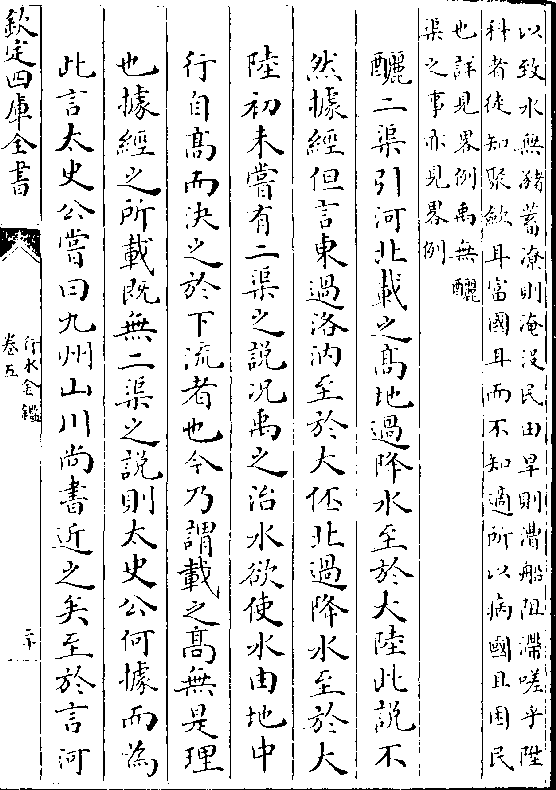 以致水無豬蓄潦則淹没民田旱則漕船阻滯嗟乎陞
科者徒知聚歛耳富國耳而不知適所以病國且困民
也詳見畧例禹無釃
渠之事亦見畧例
釃二渠引河北載之髙地過降水至於大陸此說不
然據經但言東過洛汭至於大伾北過降水至於大
陸初未嘗有二渠之說况禹之治水欲使水由地中
行自髙而決之於下流者也今乃謂載之髙無是理
也據經之所載既無二渠之說則太史公何據而為
此言太史公嘗曰九州山川尚書近之矣至於言河
欽定四庫全書
行水金鑑
卷五